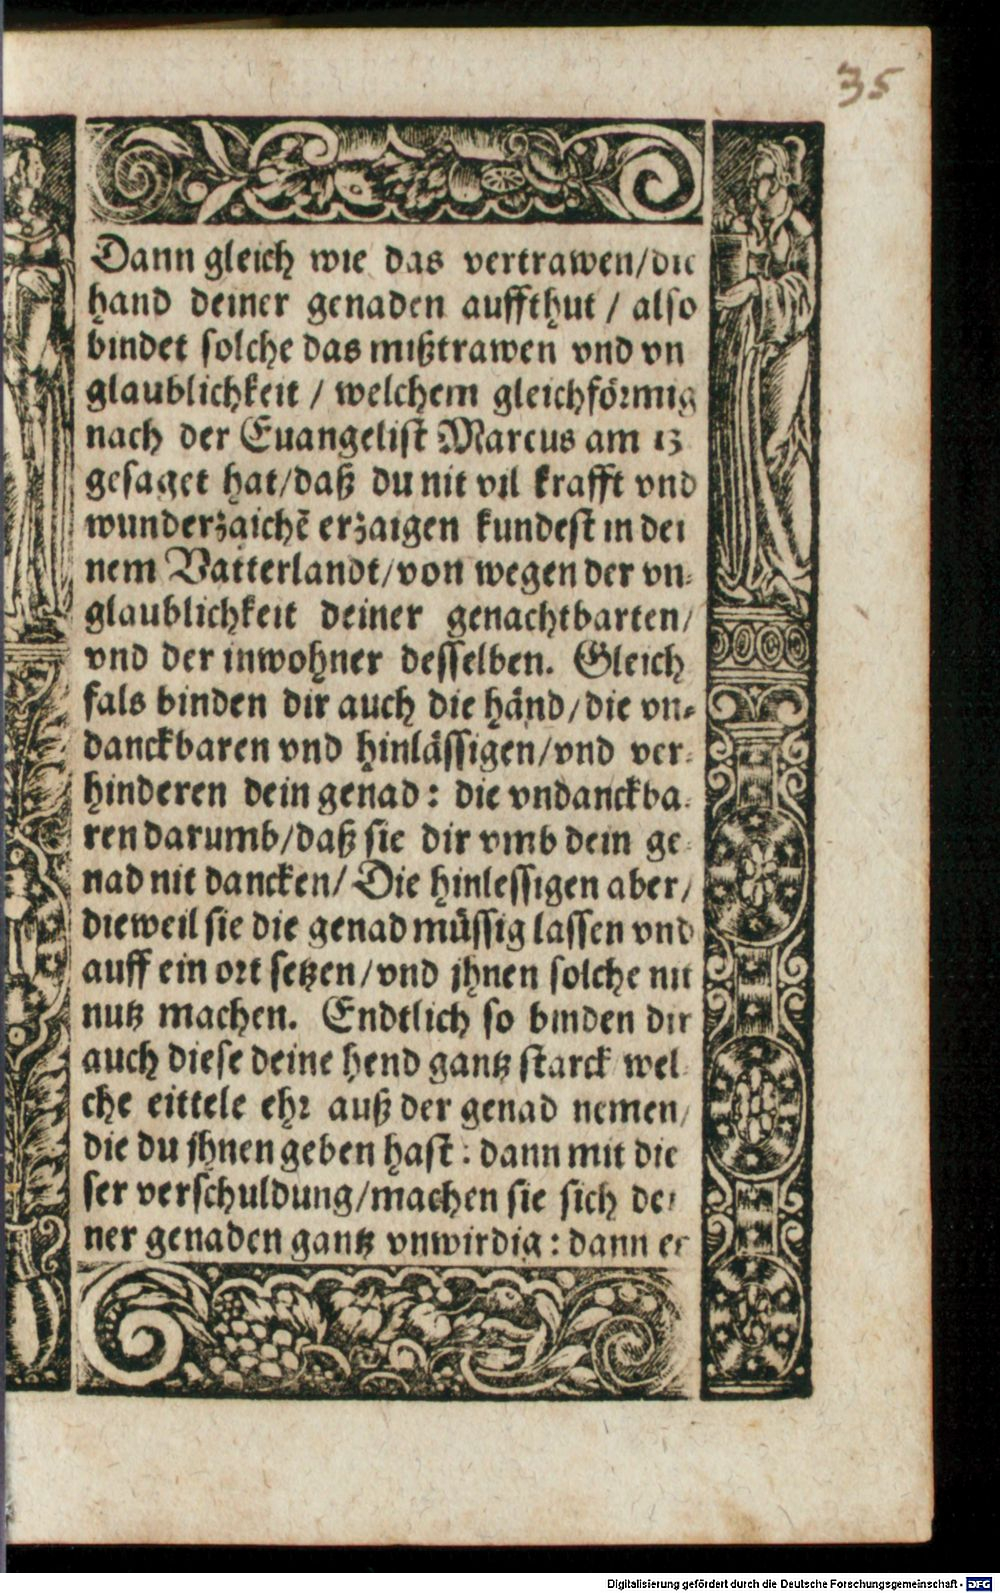 35
Dann gleich wie das vertrawen/die
hand deiner genaden auffthut / also
bindet solche das mißtrawen vnd vn
glaublichkeit / welchem gleichförmig
nach der Euangelist Marcus am 13
gesaget hat/daß du nit vil krafft vnd
wunderzaichē erzaigen kundest in dei
nem Vatterlandt/von wegen der vn⸗
glaublichkeit deiner genachtbarten/
vnd der inwohner desselben. Gleich
fals binden dir auch die händ/die vn⸗
danckbaren vnd hinlässigen/vnd ver⸗
hinderen dein genad: die vndanckba⸗
ren darumb/daß sie dir vmb dein ge⸗
nad nit dancken/ Die hinlessigen aber/
dieweil sie die genad müssig lassen vnd
auff ein ort setzen/vnd jhnen solche nit
nutz machen. Endtlich so binden dir
auch diese deine hend gantz starck wel⸗
che eittele ehr auß der genad nemen/
die du jhnen geben hast: dann mit die
ser verschuldung/machen sie sich dei
ner genaden gantz vnwirdig: dann er
Digitalisierung gefördert durch die Deutsche Forschungsgemeinschaft - DFG